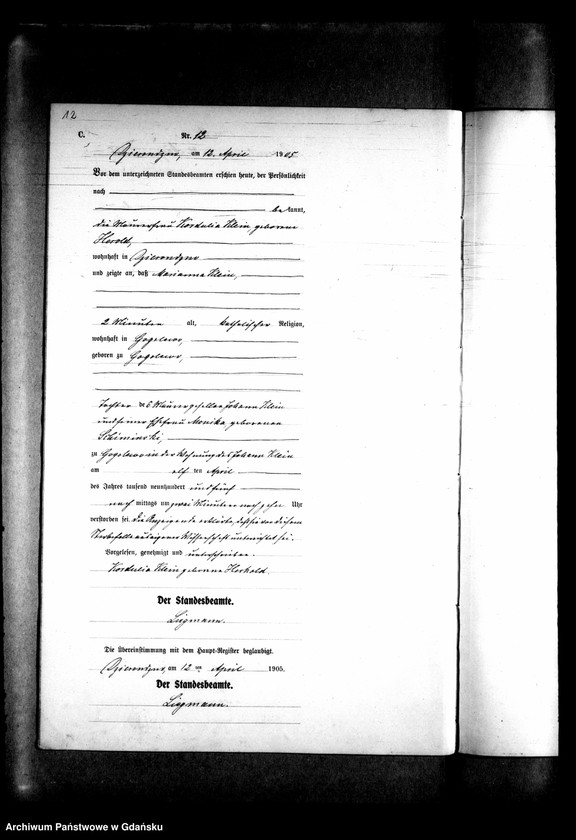 12
C.
Nr. 12
Dzierondzno, am 12. April 1905
Vor dem unterzeichneten Standesbeamten erschien heute, der Persönlichkeit
nach
bekannt,
die Maurerfrau Kordulia Klein geborene
Herold,
wohnhaft in Dzierondzno
und zeigte an, daß Marianna Klein,
2 Minuten alt, katholischer Religion,
wohnhaft in Gogolewo,
geboren zu Gogolewo,
Tochter des Maurergesellen Johann Klein
und seiner Ehefrau Monika, geborenen
zu Gogolewo in der Wohnung des Johann Klein
am elften April
des Jahres tausend neunhundert und fünf
nach mittags um zwei Minuten nach zehn Uhr
verstorben sei. Die Anzeigende erklärte, daß sie von diesem
Sterbefalle aus eigener Wissenschaft unterrichtet sei.
Vorgelesen, genehmigt und unterschrieben.
Kordulia Klein geborene Herhold.
Der Standesbeamte.
Liepmann.
Die Übereinstimmung mit dem Haupt-Register beglaubigt.
Dzierondzno, am 12 ten April 1905.
Der Standesbeamte.
Liepmann.
Archiwum Państwowe w Gdańsku